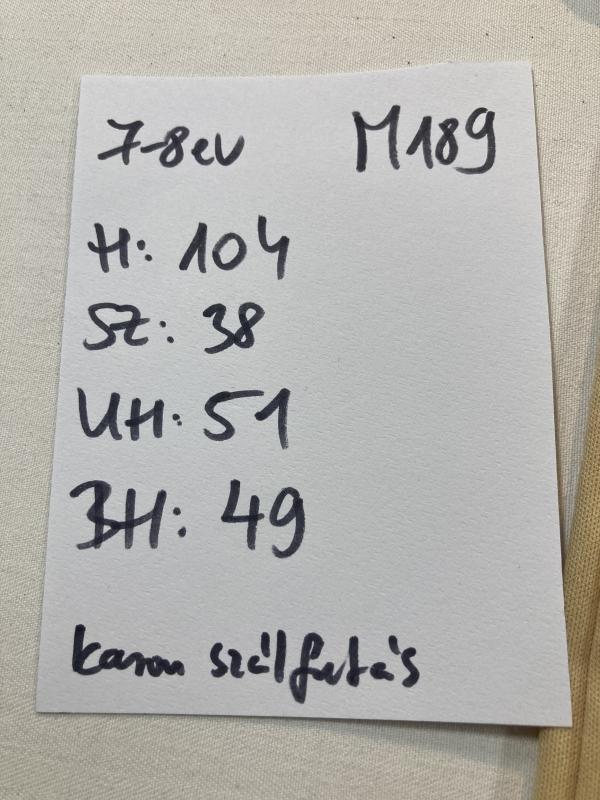 7-8 ev M189
H: 104
SZ: 38
UH: 51
BH: 49
karon szálfutás